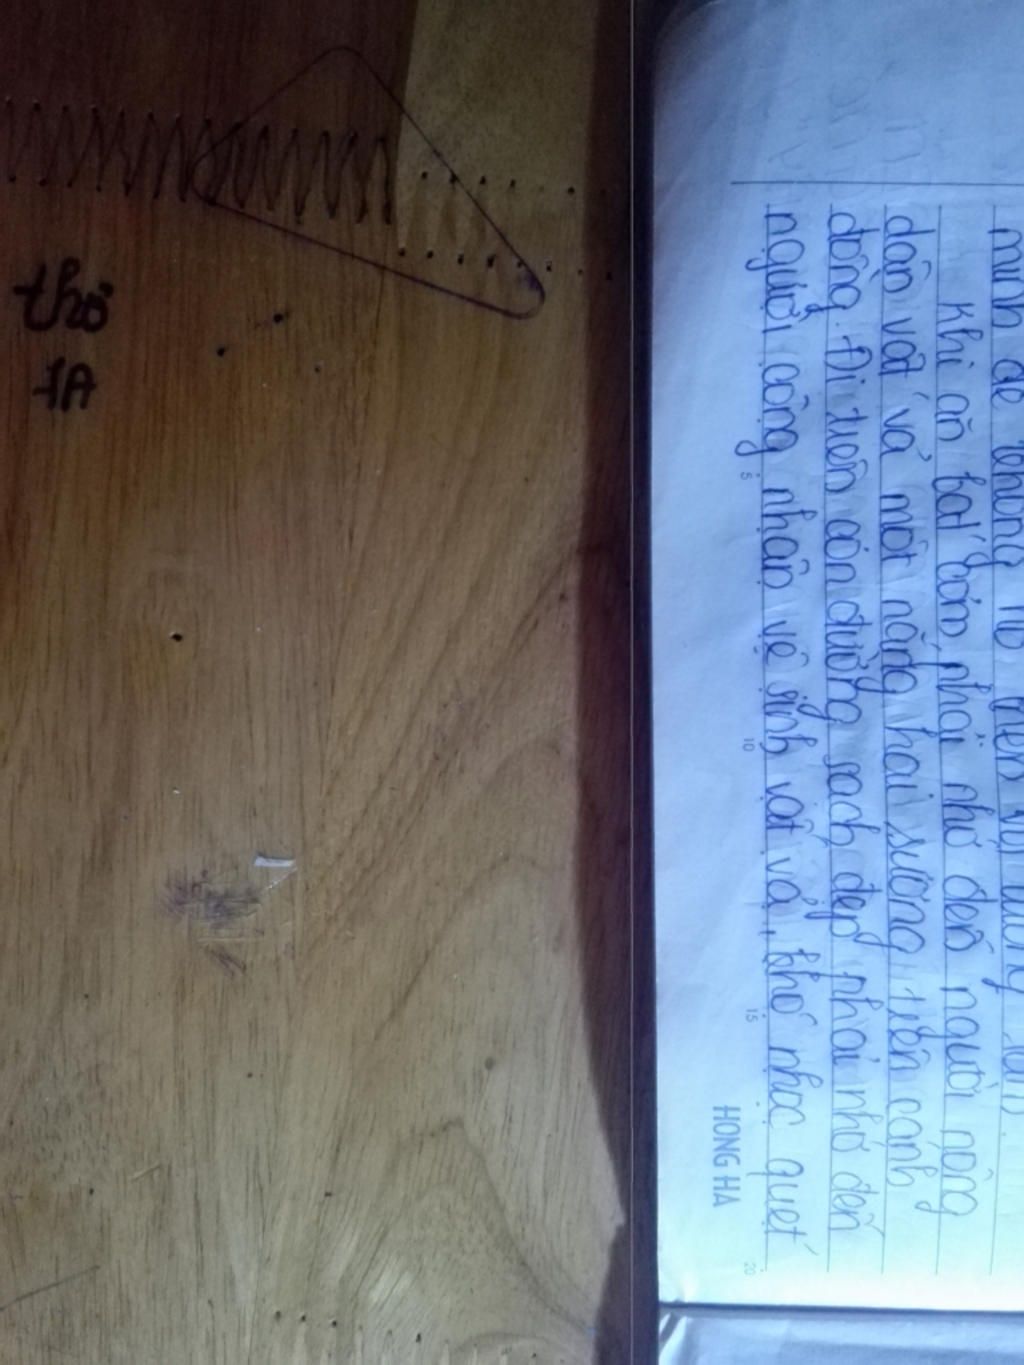 thơ
1A
mình để
Khi ăn bát cơm phải nhớ đến người nông
dân vất vả một nắng hai sương trên cánh
đồng. Đi trên con đường sạch đẹp phải nhớ đến
người công nhân vệ sinh vất vả, khó nhọc quét
5
10
15
20
HONG HA